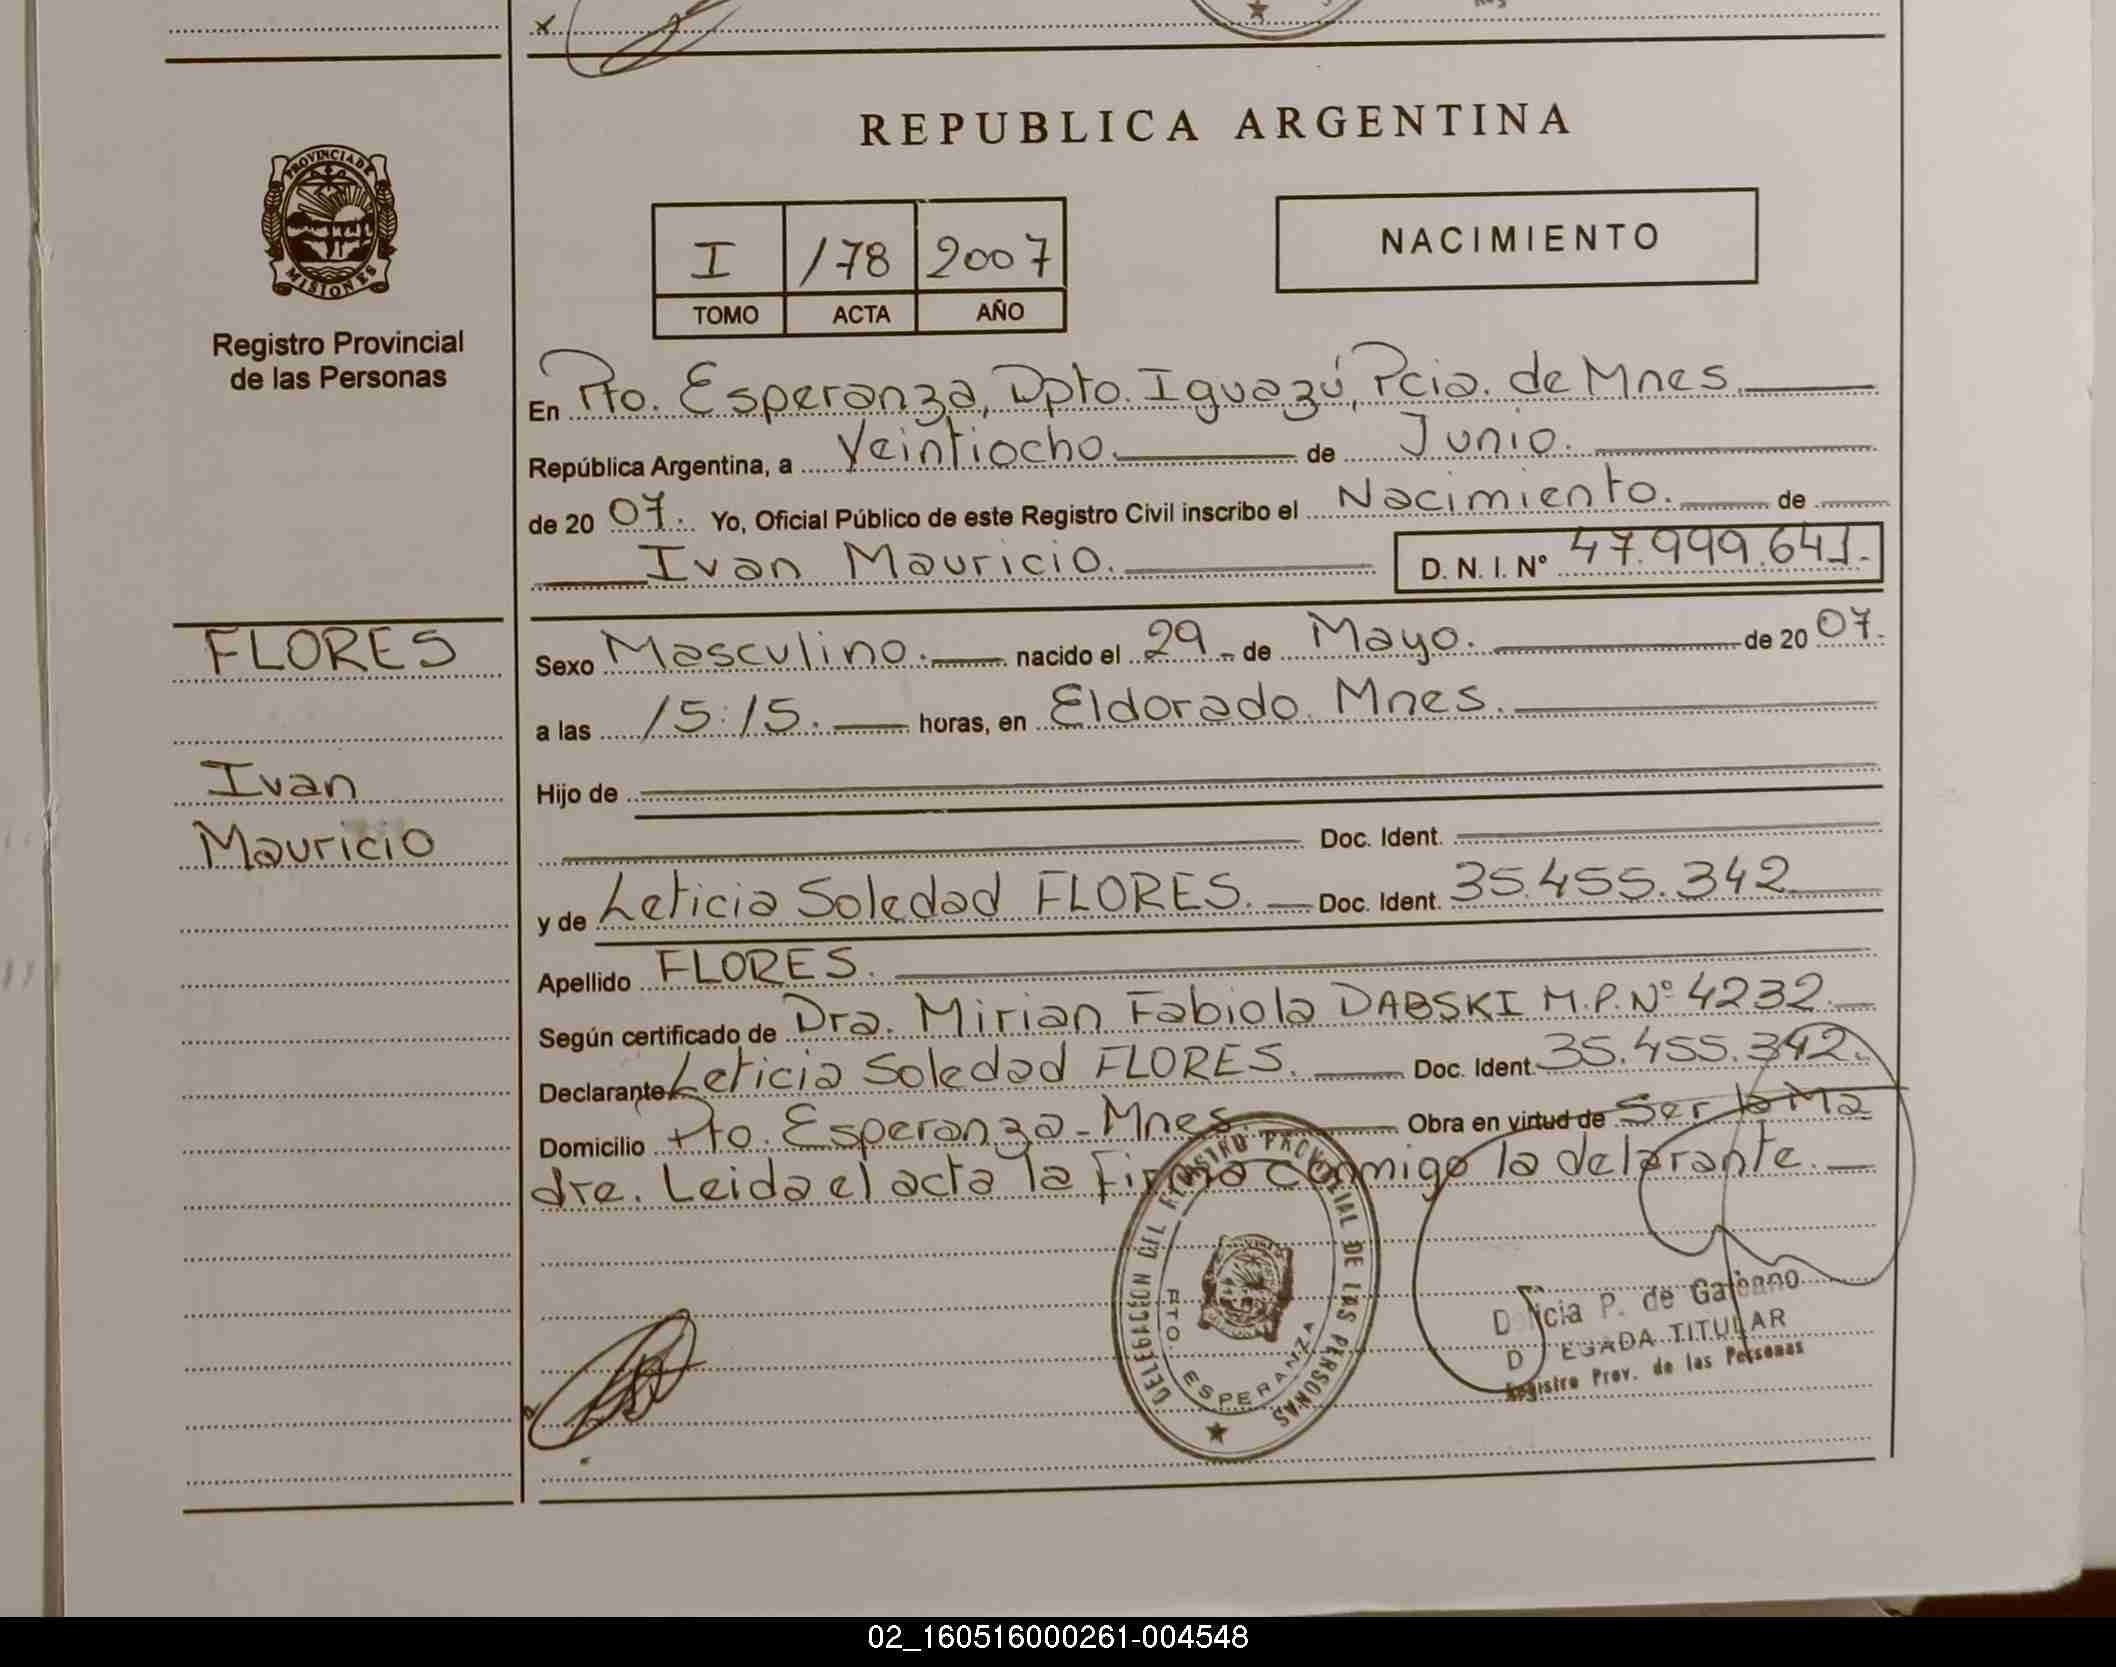 REPUBLICA ARGENTINA
PROVINCIA DE MISIONES
Registro Provincial
de las Personas
I /78 2007
TOMO ACTA AÑO
NACIMIENTO
En Pto. Esperanza, Dpto. Iguazú, Pcia. de Mnes.
República Argentina, a Veintiocho. de Junio.
de 20 07. Yo, Oficial Público de este Registro Civil inscribo el Nacimiento. de
Ivan Mauricio. D. N. I. Nº 47.999.641.
FLORES
Ivan
Mauricio
Sexo Masculino. nacido el 29 de Mayo. de 20 07.
a las 15:15. horas, en Eldorado. Mnes.
Hijo de
Doc. Ident.
y de Leticia Soledad FLORES. Doc. Ident. 35.455.342
Apellido FLORES.
Según certificado de Dra. Mirian Fabiola DABSKI M.P. Nº 4232.
Declarante Leticia Soledad FLORES. Doc. Ident. 35.455.342.
Domicilio Pto. Esperanza - Mnes. Obra en virtud de Ser la Ma
dre. Leida el acta la Firma conmigo la delarante.
DELEGACION DEL REGISTRO PROVINCIAL DE LAS PERSONAS
PTO. ESPERANZA
P. de Galeano
TITULAR
Registro Prov. de las Personas
02_160516000261-004548